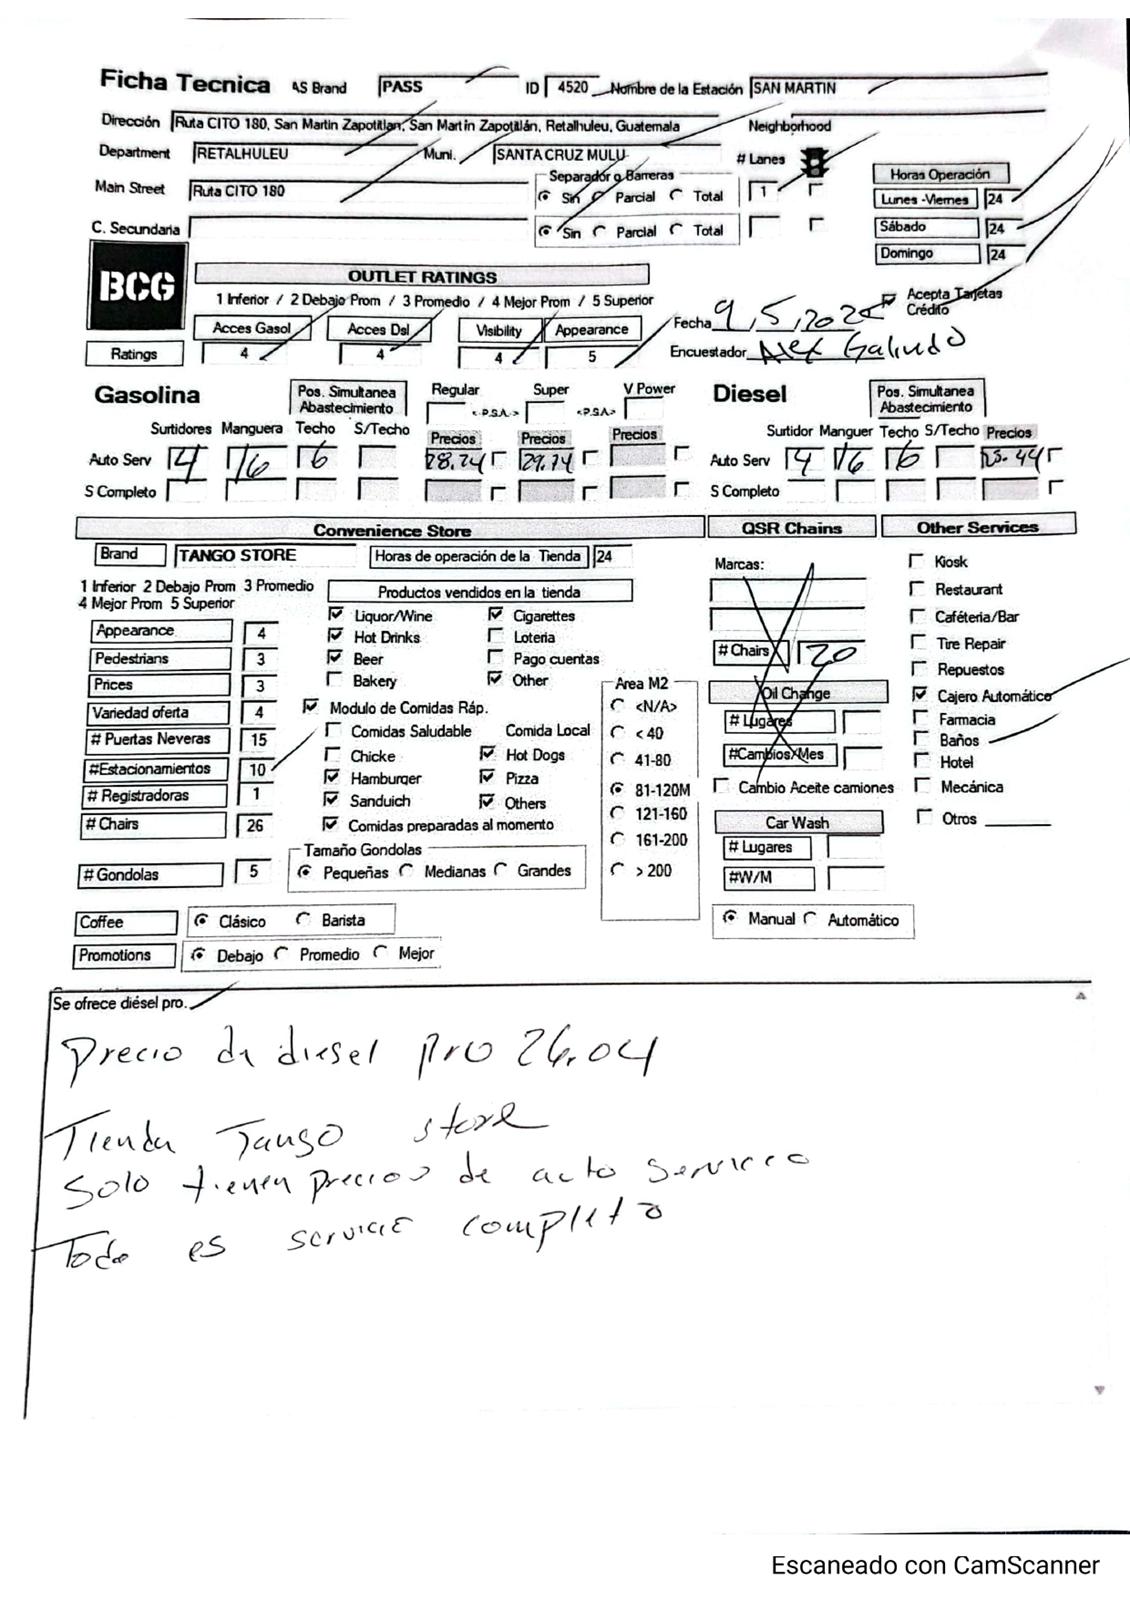 Ficha Tecnica AS Brand PASS ID 4520 Nombre de la Estación SAN MARTIN
Dirección Ruta CITO 180, San Martin Zapotitlan, San Martín Zapotitlán, Retalhuleu, Guatemala Neighborhood
Department RETALHULEU Muni. SANTA CRUZ MULU # Lanes
Main Street Ruta CITO 180 Separador o Barreras Sin Parcial Total 1 Horas Operación
Lunes -Viernes 24
C. Secundaria Sin Parcial Total Sábado 24
Domingo 24
BCG OUTLET RATINGS
1 Inferior / 2 Debajo Prom / 3 Promedio / 4 Mejor Prom / 5 Superior Acepta Tarjetas Crédito
Acces Gasol Acces Dsl Visibility Appearance Fecha 9,5,2022
Ratings 4 4 4 5 Encuestador Alex Galindo
Gasolina Pos. Simultanea Abastecimiento Regular Super V Power Diesel Pos. Simultanea Abastecimiento
<.P.S.A.> <P.S.A>
Surtidores Manguera Techo S/Techo Precios Precios Precios Surtidor Manguer Techo S/Techo Precios
Auto Serv 4 16 6 28.24 29.74 Auto Serv 4 16 6 23.44
S Completo S Completo
Convenience Store QSR Chains Other Services
Brand TANGO STORE Horas de operación de la Tienda 24 Marcas: Kiosk
1 Inferior 2 Debajo Prom 3 Promedio Productos vendidos en la tienda Restaurant
4 Mejor Prom 5 Superior Liquor/Wine Cigarettes Caféteria/Bar
Appearance 4 Hot Drinks Loteria Tire Repair
Pedestrians 3 Beer Pago cuentas # Chairs 20 Repuestos
Prices 3 Bakery Other Area M2 Oil Change Cajero Automático
Variedad oferta 4 Modulo de Comidas Ráp. <N/A> # Lugares Farmacia
# Puertas Neveras 15 Comidas Saludable Comida Local < 40 Baños
#Estacionamientos 10 Chicke Hot Dogs 41-80 #Cambios/Mes Hotel
# Registradoras 1 Hamburger Pizza 81-120M Cambio Aceite camiones Mecánica
# Chairs 26 Sanduich Others 121-160 Car Wash Otros
Comidas preparadas al momento 161-200 # Lugares
Tamaño Gondolas
# Gondolas 5 Pequeñas Medianas Grandes > 200 #W/M
Coffee Clásico Barista Manual Automático
Promotions Debajo Promedio Mejor
Se ofrece diésel pro.
Precio de diesel pro 26.04
Tienda Tango store
Solo tienen precios de acto servicio
Todo es servicio completo
Escaneado con CamScanner